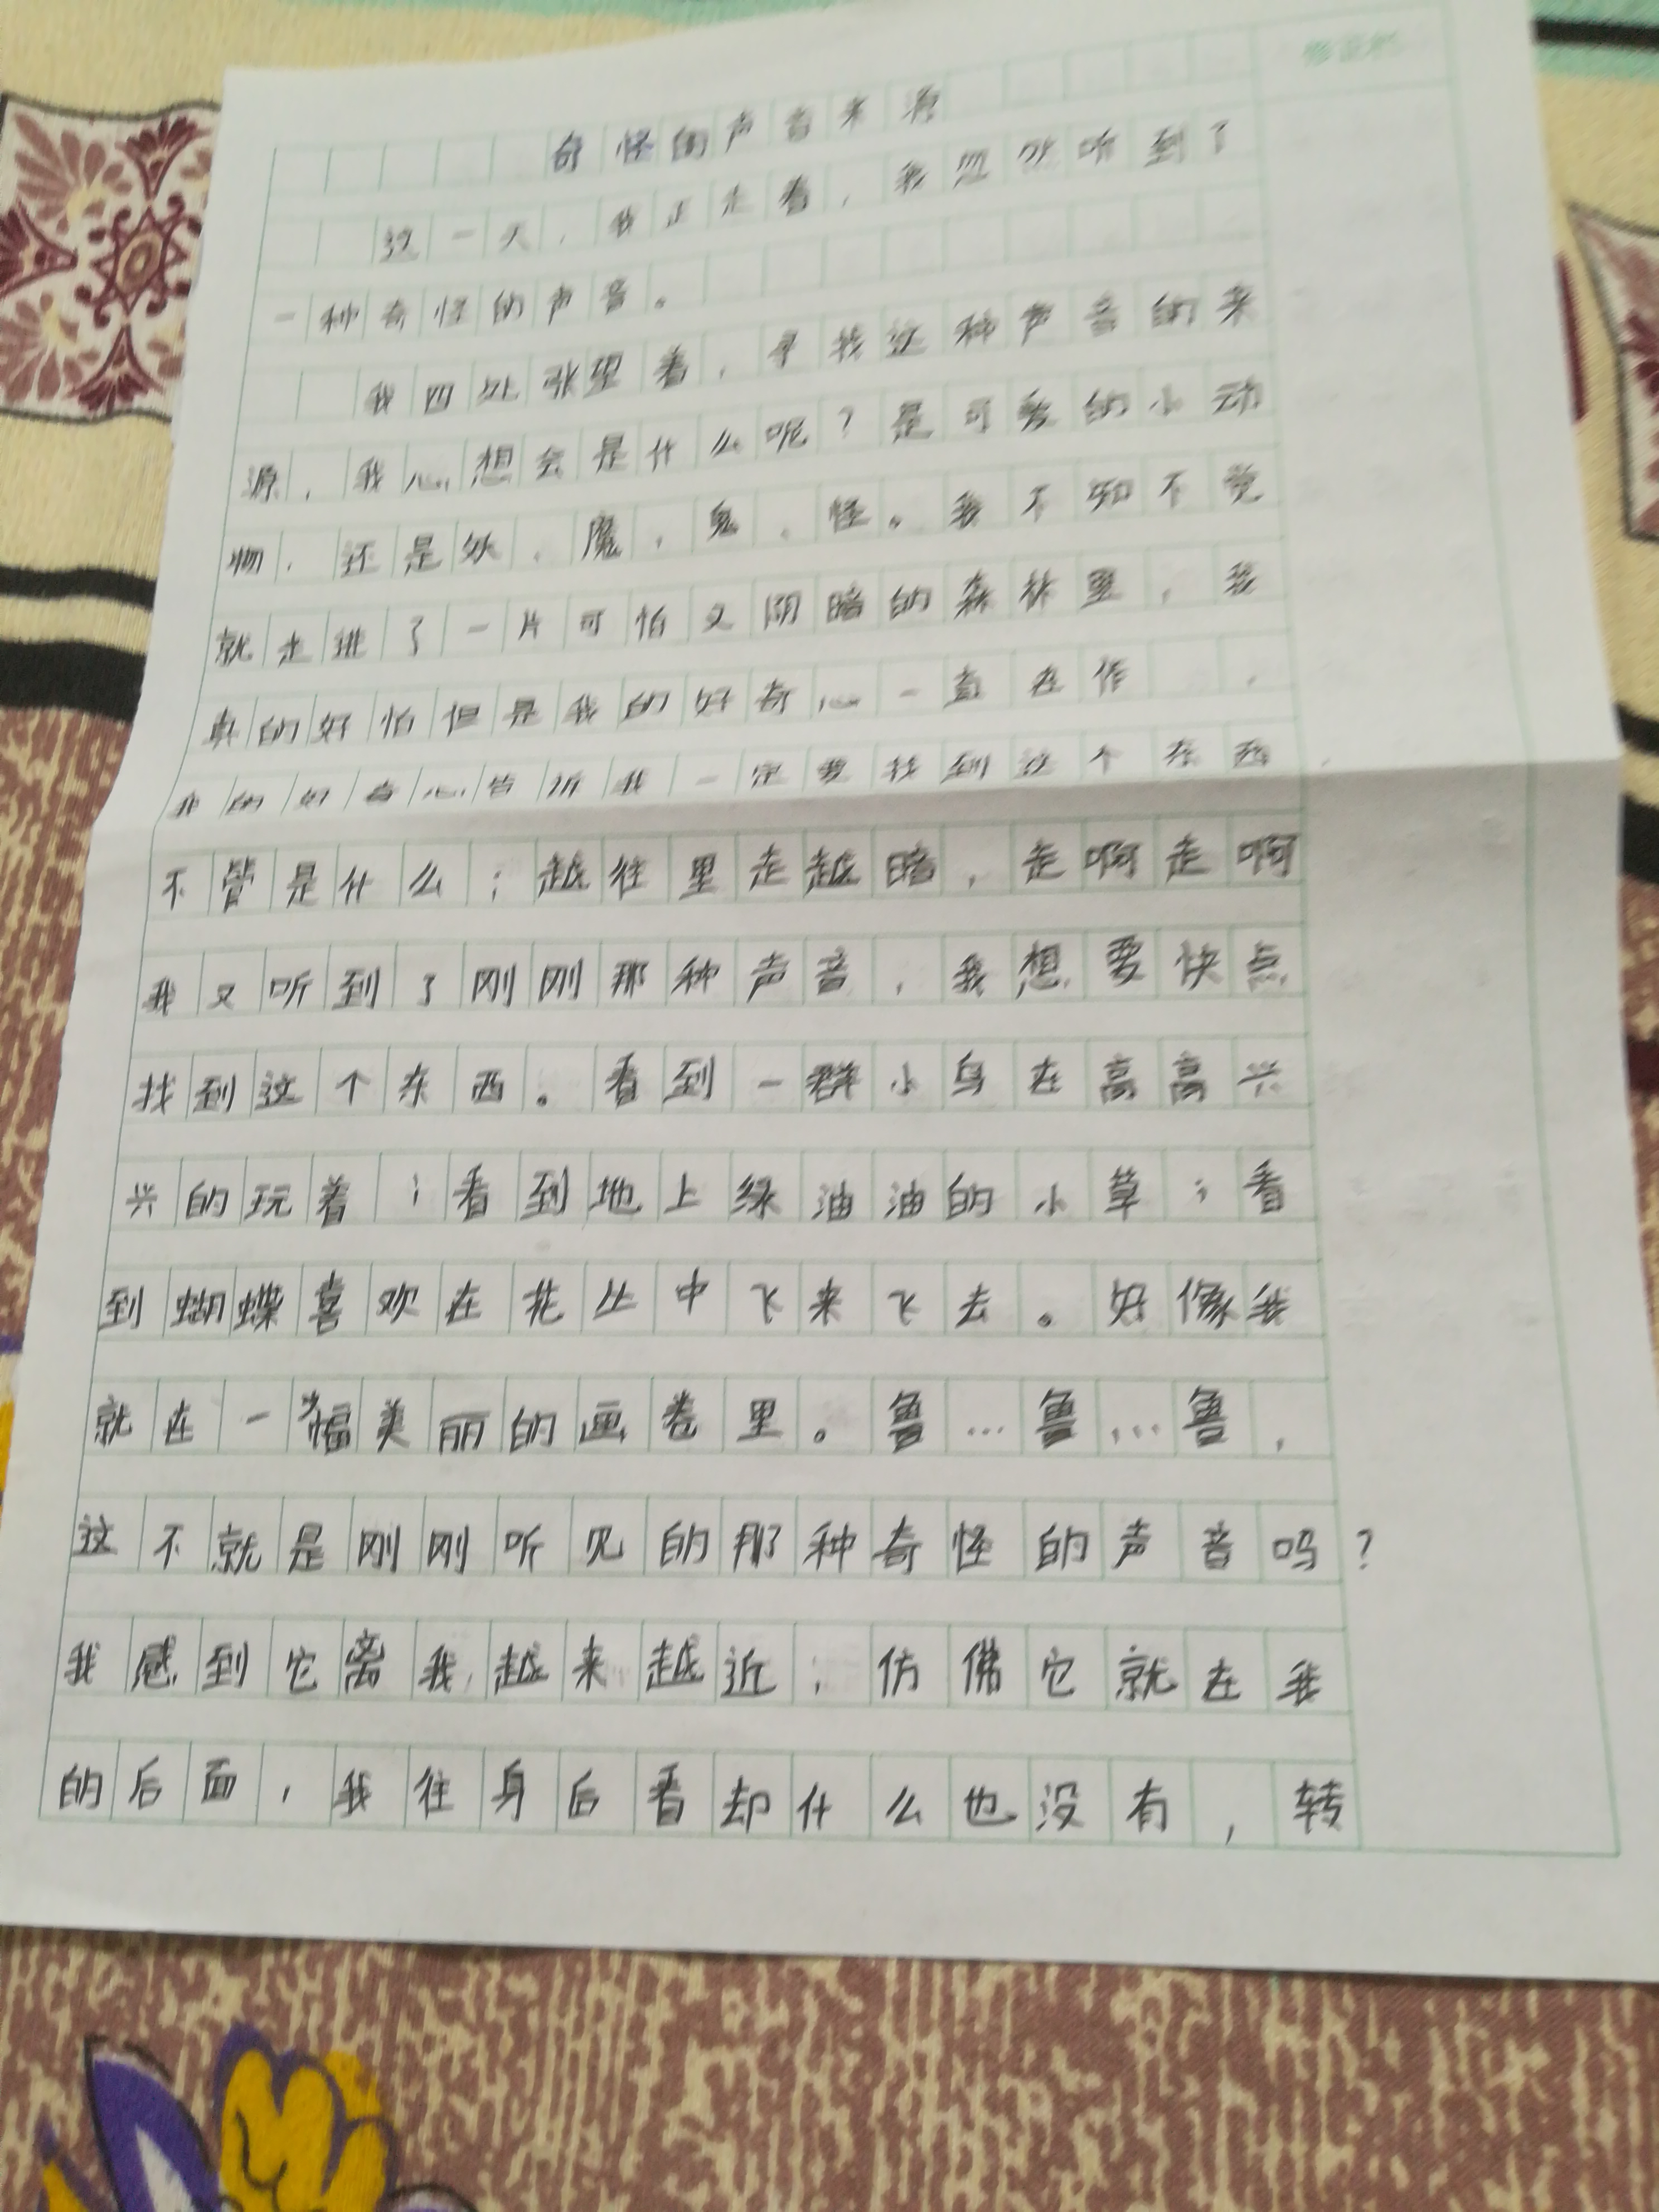 奇怪的声音来源
这一天，我正走着，我忽然听到了
一种奇怪的声音。
我四处张望着，寻找这种声音的来
源，我心想会是什么呢？是可爱的小动
物，还是妖、魔、鬼、怪。我不知不觉
就走进了一片可怕又阴暗的森林里，我
真的好怕但是我的好奇心一直在作，
我的好奇心告诉我一定要找到这个东西，
不管是什么；越往里走越暗，走啊走啊
我又听到了刚刚那种声音，我想要快点
找到这个东西。看到一群小鸟在高高兴
兴的玩着；看到地上绿油油的小草；看
到蝴蝶喜欢在花丛中飞来飞去。好像我
就在一幅美丽的画卷里。鲁…鲁…鲁，
这不就是刚刚听见的那种奇怪的声音吗？
我感到它离我越来越近；仿佛它就在我
的后面，我往身后看却什么也没有，转